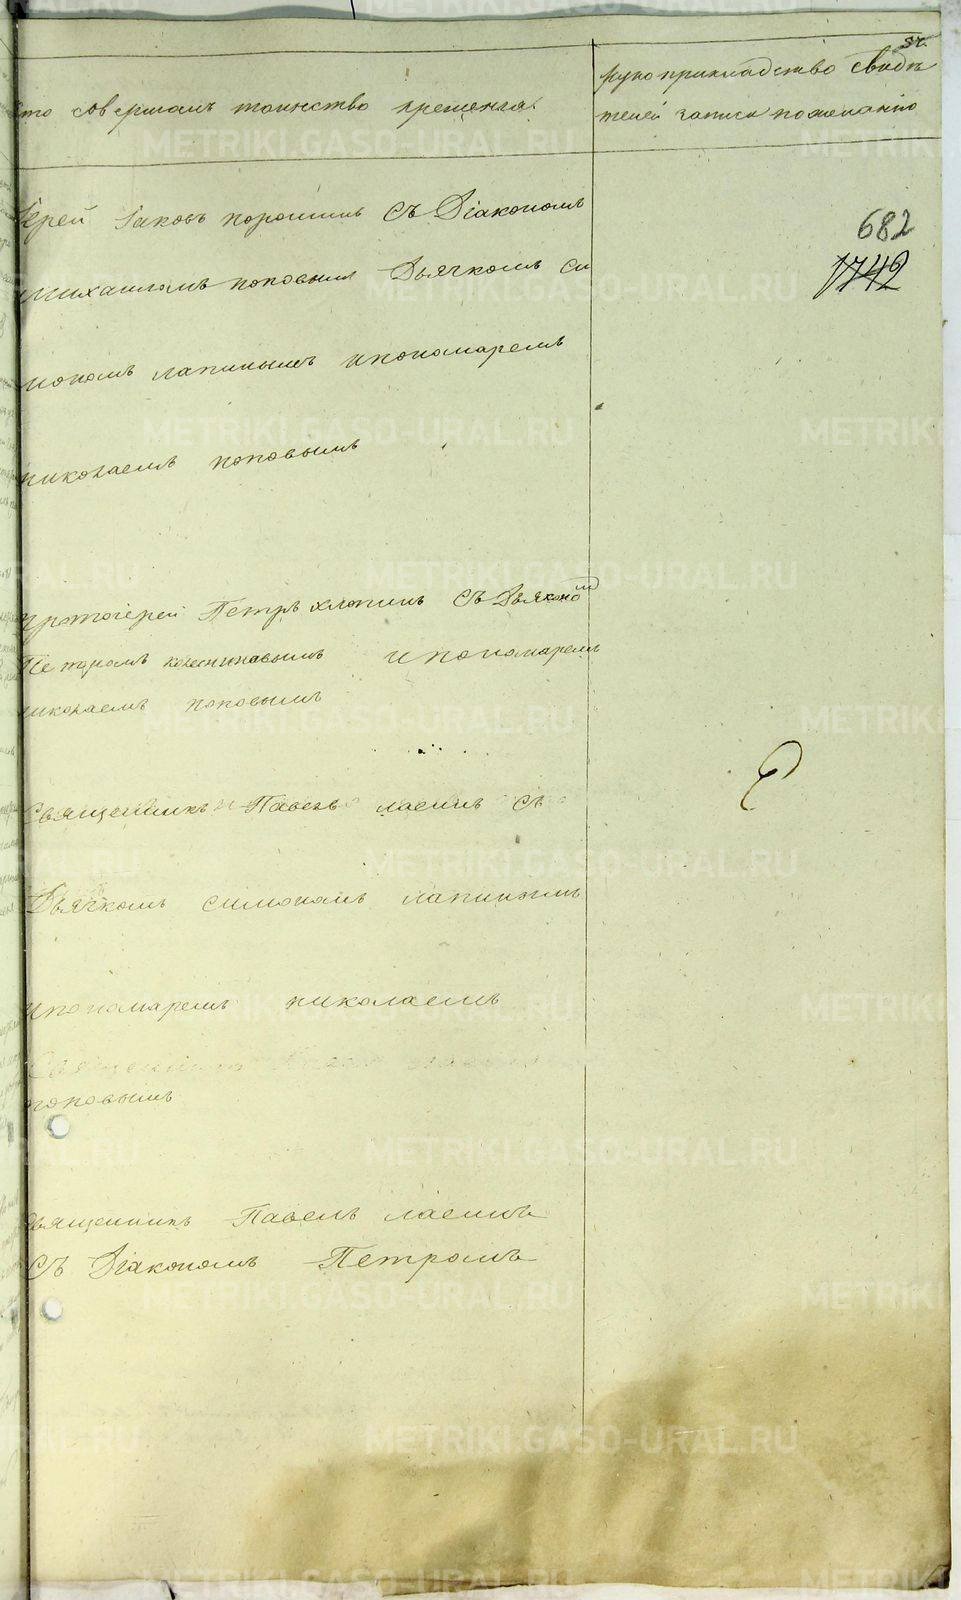 кто совершалъ таинство крещенія.
рукоприкладство свидѣ
телей записи по желанію
Іерей Іаковъ порошинъ Съ Діакономъ
682
1742
михаиломъ поповымъ Дьячкомъ си
мономъ лапинымъ и пономаремъ
николаемъ поповымъ
протоіерей Петръ хлопинъ Съ Дьякономъ
Петромъ и пономаремъ
николаемъ поповымъ
Священникъ Павелъ съ
Дьячкомъ симономъ лапинымъ
и пономаремъ николаемъ
поповымъ
Священникъ Павелъ
Съ Діакономъ Петромъ
METRIKI.GASO-URAL.RU